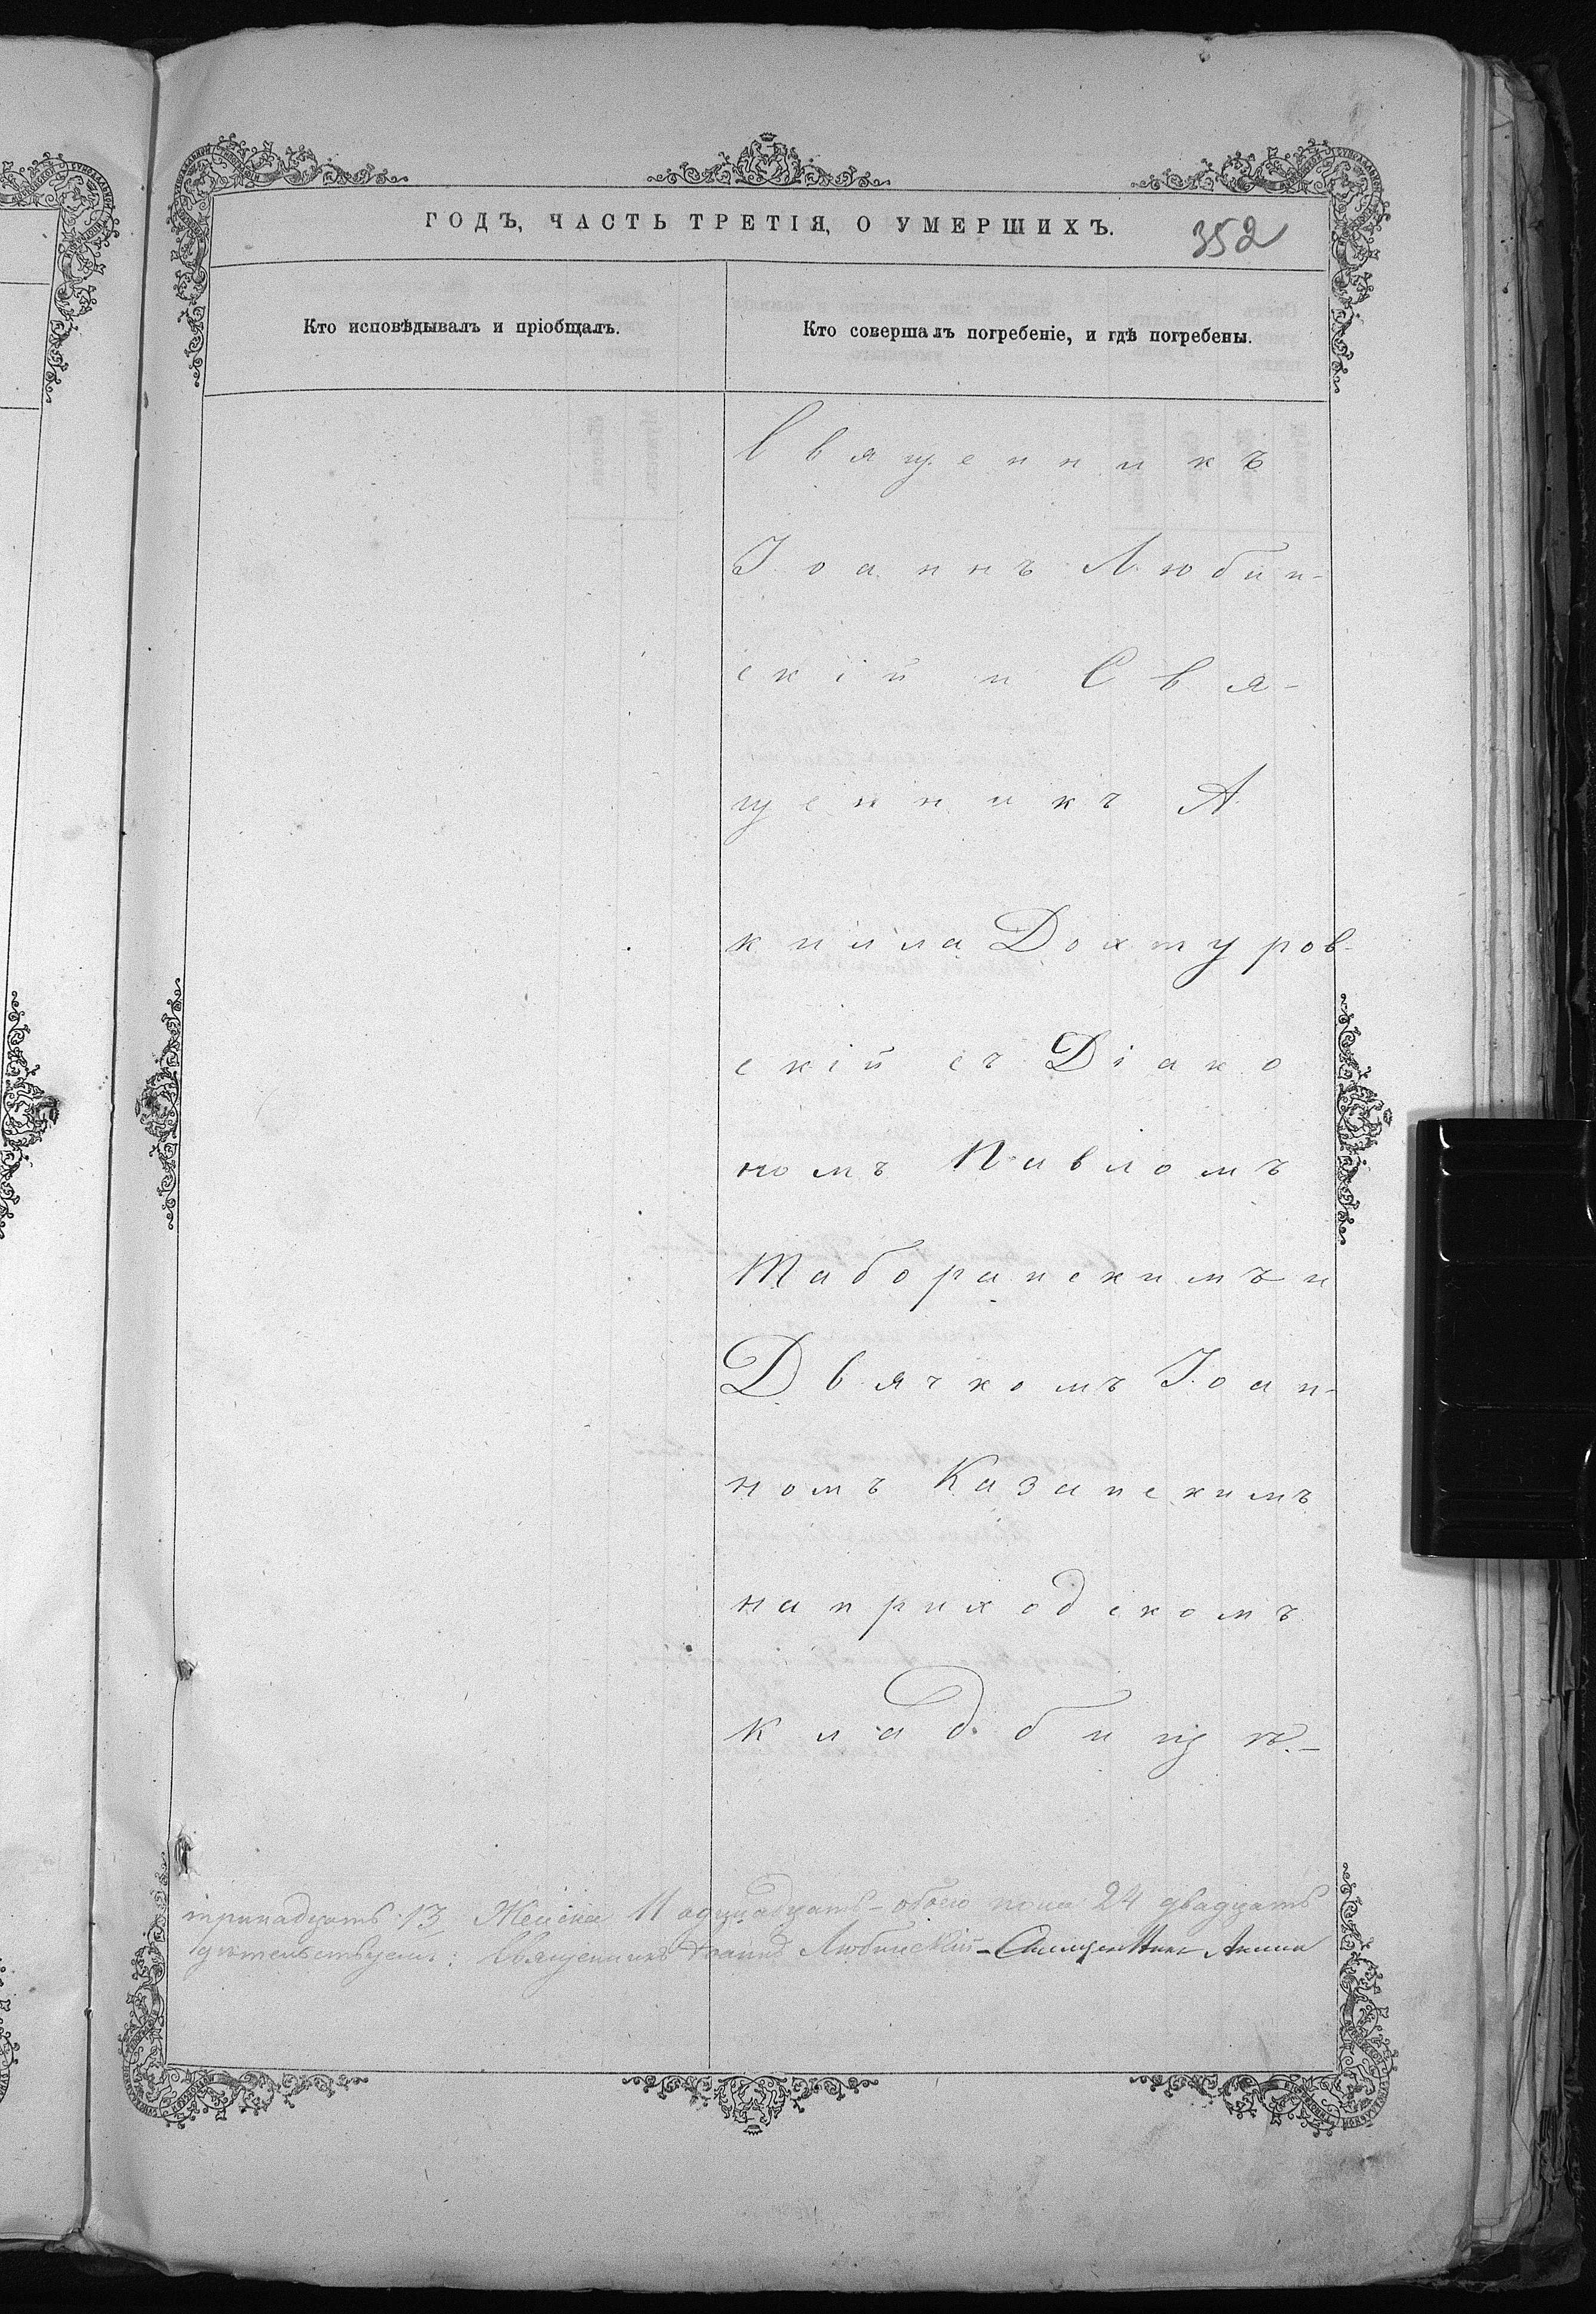 ГОДЪ, ЧАСТЬ ТРЕТІЯ, О УМЕРШИХЪ.
352
Кто исповѣдывалъ и пріобщалъ.
Кто совершалъ погребеніе, и гдѣ погребены.
Священникъ
Іоаннъ Любин-
скій и Свя-
щенникъ А
килла Дохтуров-
скій съ Діако
номъ Павломъ
Таборанскимъ и
Дьячкомъ Іоан-
номъ Казанскимъ
на приходскомъ
кладбищѣ.-
тринадцать 13 Женска 11 одиннадцать - обоего пола 24 двадцать
дѣтельствуемъ: Священникъ Іоаннъ Любинскій - Священникъ Акила